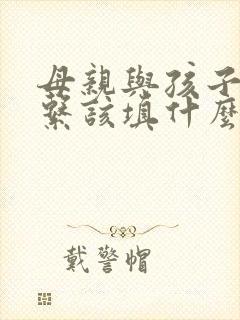 母親與孩子
繫該填什麼
戴警帽